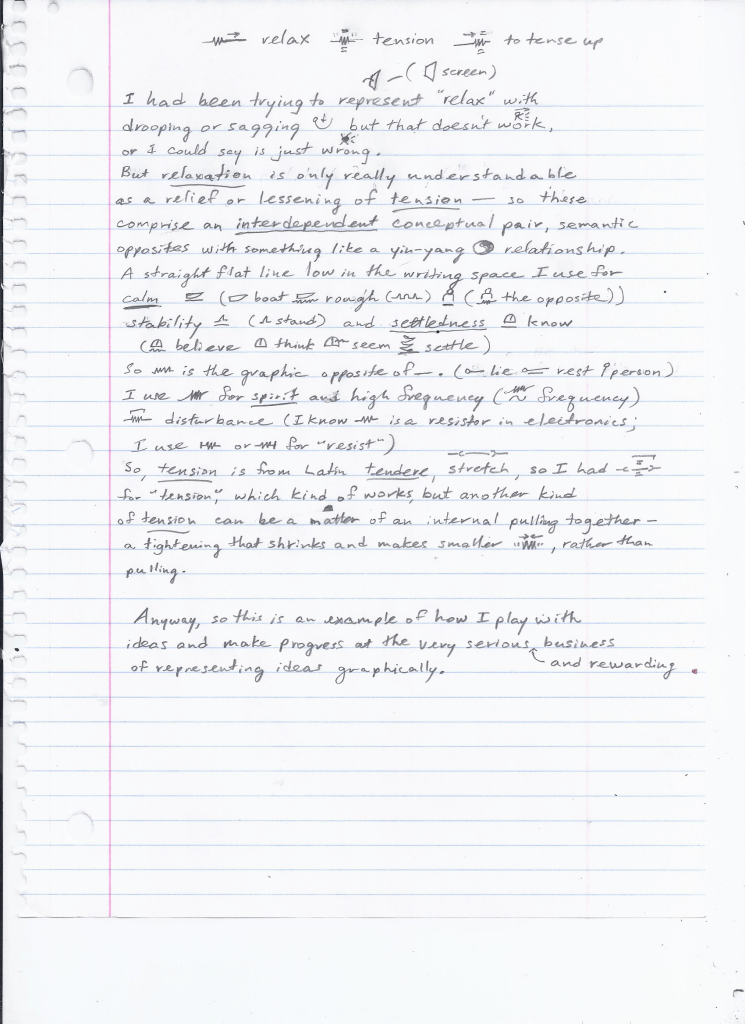 relax tension to tense up
( screen)
I had been trying to represent "relax" with
drooping or sagging but that doesn't work,
or I could say is just wrong.
But relaxation is only really understandable
as a relief or lessening of tension — so these
comprise an interdependent conceptual pair, semantic
opposites with something like a yin-yang relationship.
A straight flat line low in the writing space I use for
calm ( boat rough ( ) ( the opposite))
stability ( stand) and settledness know
( believe think seem settle)
So is the graphic opposite of —. ( lie rest person)
I use for spirit and high frequency ( frequency)
disturbance (I know is a resistor in electronics;
I use or for "resist")
So, tension is from Latin tendere, stretch, so I had
for "tension," which kind of works, but another kind
of tension can be a matter of an internal pulling together —
a tightening that shrinks and makes smaller , rather than
pulling.
Anyway, so this is an example of how I play with
ideas and make progress at the very serious business
of representing ideas graphically. and rewarding